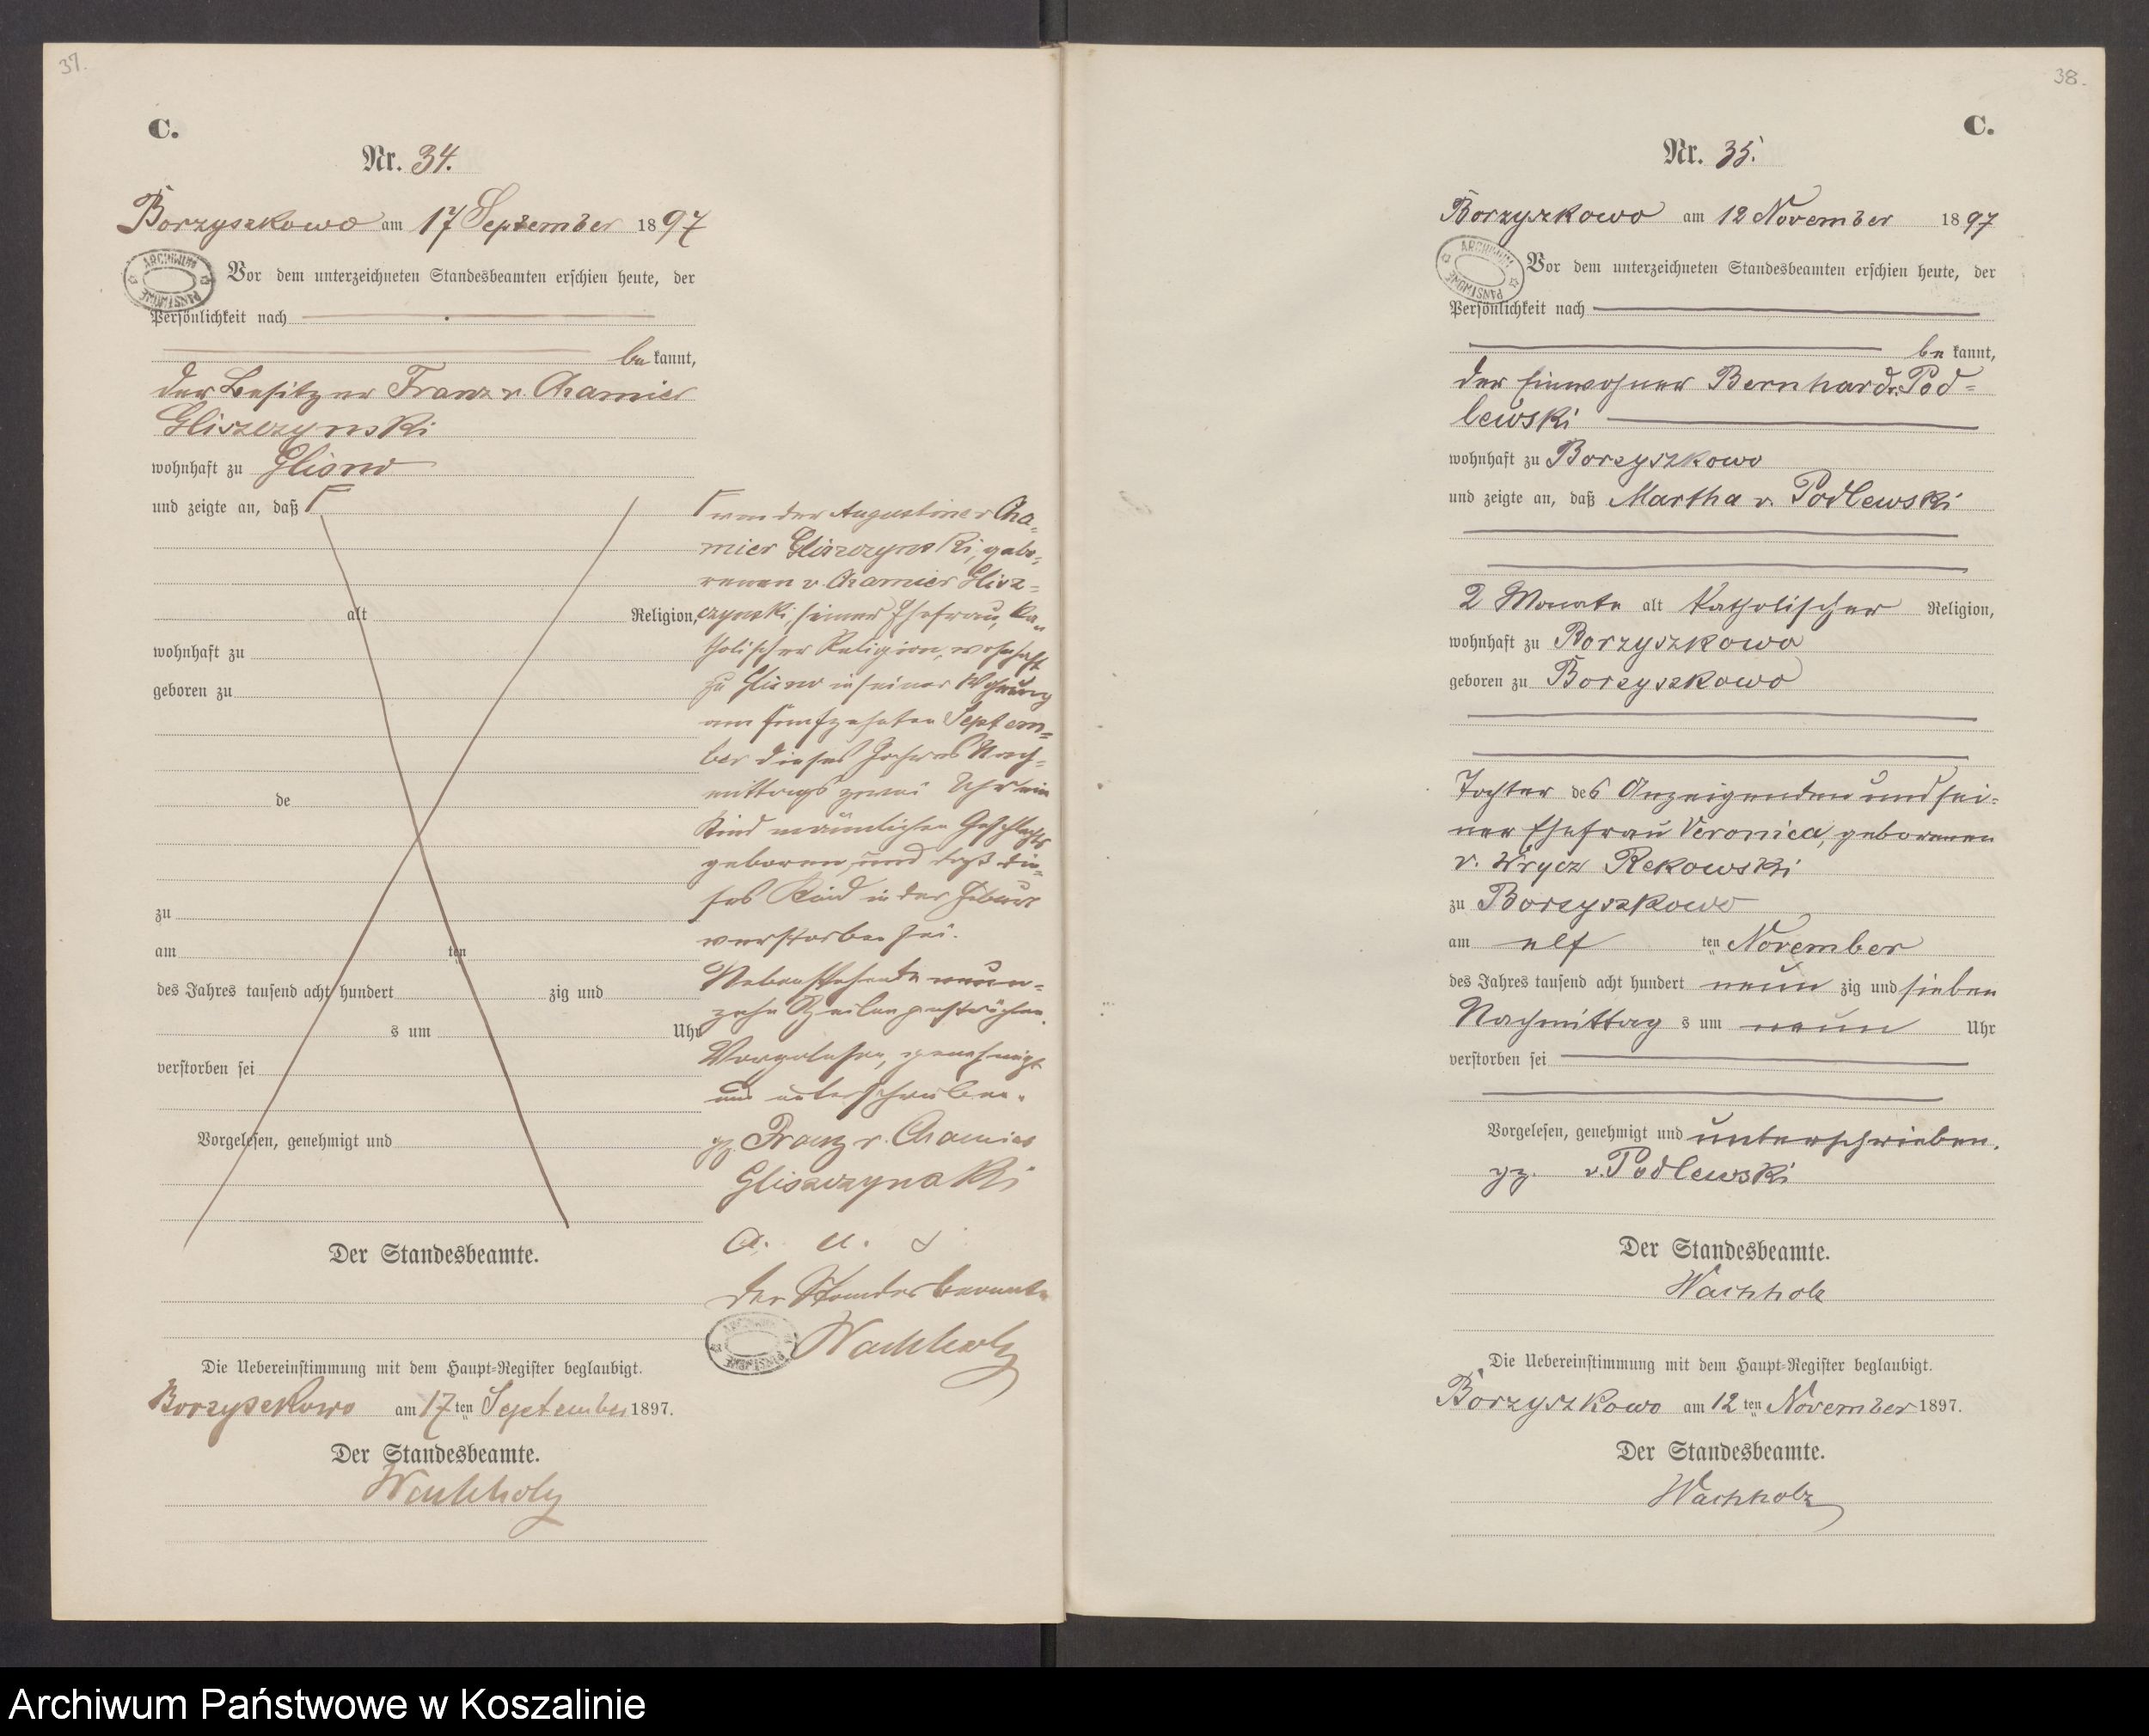 37.
C.
Nr. 34.
Borzyszkowo am 17 September 1897
ARCHIWUM PAŃSTWOWE
Vor dem unterzeichneten Standesbeamten erschien heute, der
Persönlichkeit nach
be kannt,
der Besitzer Franz v. Chamier
Gliszczynski
wohnhaft zu
und zeigte an, daß
alt Religion,
wohnhaft zu
geboren zu
de
zu
am ten
des Jahres tausend acht hundert zig und
s um Uhr
verstorben sei
Vorgelesen, genehmigt und
von der Augustine v Cha-
mier Gliszczynski, gebo-
renen v. Chamier Glisz-
czynski, seiner Ehefrau, ka-
tholischer Religion, wohnhaft
zu in seiner Wohnung
am fünfzehnten Septem-
ber dieses Jahres Nach-
mittags zwei Uhr ein
Kind männlichen Geschlechts
geboren, und daß die-
ses Kind in der Geburt
verstorben sei.
Nebenstehende neun-
zehn Zeilen gestrichen.
Vorgelesen, genehmigt
und unterschrieben.
gz. Franz v. Chamier
Gliszczynski
a. u. s
Der Standesbeamte
ARCHIWUM PAŃSTWOWE
Wachholz
Der Standesbeamte.
Die Uebereinstimmung mit dem Haupt-Register beglaubigt.
Borzyszkowo am 17 ten September 1897.
Der Standesbeamte.
Wachholz
38.
C.
Nr. 35.
Borzyszkowo am 12 November 1897
ARCHIWUM PAŃSTWOWE
Vor dem unterzeichneten Standesbeamten erschien heute, der
Persönlichkeit nach
be kannt,
der Einwohner Bernhard v. Pod-
lewski
wohnhaft zu Borzyszkowo
und zeigte an, daß Martha v. Podlewski
2 Monate alt katholischer Religion,
wohnhaft zu Borzyszkowo
geboren zu Borzyszkowo
Tochter des Anzeigenden und sei-
ner Ehefrau Veronica, geborenen
v. Wrycz Rekowski
zu Borzyszkowo
am elf ten November
des Jahres tausend acht hundert neun zig und sieben
Nachmittag s um neun Uhr
verstorben sei
Vorgelesen, genehmigt und unterschrieben.
gz. v. Podlewski
Der Standesbeamte.
Wachholz
Die Uebereinstimmung mit dem Haupt-Register beglaubigt.
Borzyszkowo am 12 ten November 1897.
Der Standesbeamte.
Wachholz
Archiwum Państwowe w Koszalinie